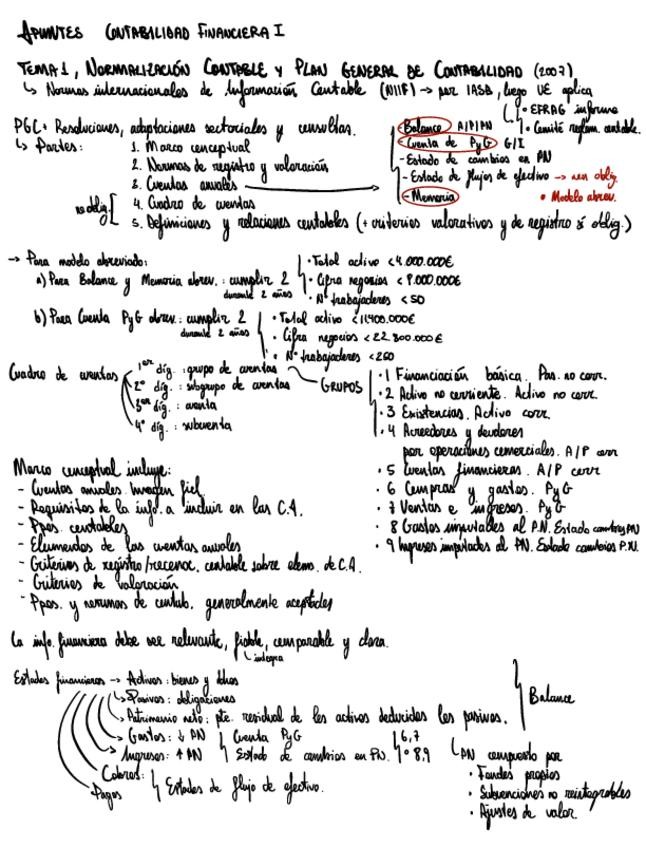 APUNTES CONTABILIDAD FINANCIERA I
TEMA 1, NORMALIZACIÓN CONTABLE Y PLAN GENERAL DE CONTABILIDAD (2007)
↳ Normas internacionales de Información Contable (NIIF) → por IASB, luego UE aplica
• EFRAG informa
• Comité reglam. contable.
PGC + Resoluciones, adaptaciones sectoriales y consultas.
↳ Partes:
1. Marco conceptual
2. Normas de registro y valoración
3. Cuentas anuales
no oblig.
4. Cuadro de cuentas
5. Definiciones y relaciones contables (+ criterios valorativos y de registro sí oblig.)
- Balance A/P/PN
- Cuenta de PyG G/I
- Estado de cambios en PN
- Estado de flujos de efectivo → non oblig.
- Memoria
• Modelo abrev.
→ Para modelo abreviado:
a) Para Balance y Memoria abrev.: cumplir 2
durante 2 años
• Total activo < 4.000.000€
• Cifra negocios < 8.000.000€
• Nº trabajadores < 50
b) Para Cuenta PyG abrev.: cumplir 2
durante 2 años
• Total activo < 11.400.000€
• Cifra negocios < 22.800.000€
• Nº trabajadores < 250
Cuadro de cuentas
1er díg.: grupo de cuentas
2º díg.: subgrupo de cuentas
3er díg.: cuenta
4º díg.: subcuenta
GRUPOS
• 1 Financiación básica. Pas. no corr.
• 2 Activo no corriente. Activo no corr.
• 3 Existencias. Activo corr.
• 4 Acreedores y deudores
por operaciones comerciales. A/P corr
• 5 Cuentas financieras. A/P corr
• 6 Compras y gastos. PyG
• 7 Ventas e ingresos. PyG
• 8 Gastos imputables al P.N. Estado cambios PN
• 9 Ingresos imputados al PN. Estado cambios P.N.
Marco conceptual incluye:
- Cuentas anuales. Imagen fiel
- Requisitos de la info. a incluir en las C.A.
- Ppos. contables
- Elementos de las cuentas anuales
- Criterios de registro/reconoc. contable sobre elem. de C.A.
- Criterios de valoración
- Ppos. y normas de contab. generalmente aceptados
La info. financiera debe ser relevante, fiable, comparable y clara.
↳ íntegra
Estados financieros → Activos: bienes y dchos
↳ Pasivos: obligaciones
↳ Patrimonio neto: pte. residual de los activos deducidos los pasivos.
Balance
→ Gastos: ↓ PN
Cuenta PyG
6,7
→ Ingresos: ↑ PN
Estado de cambios en PN.
8,9
Cobros:
Pagos
Estados de flujo de efectivo.
↳ PN compuesto por
• Fondos propios
• Subvenciones no reintegrables
• Ajustes de valor.